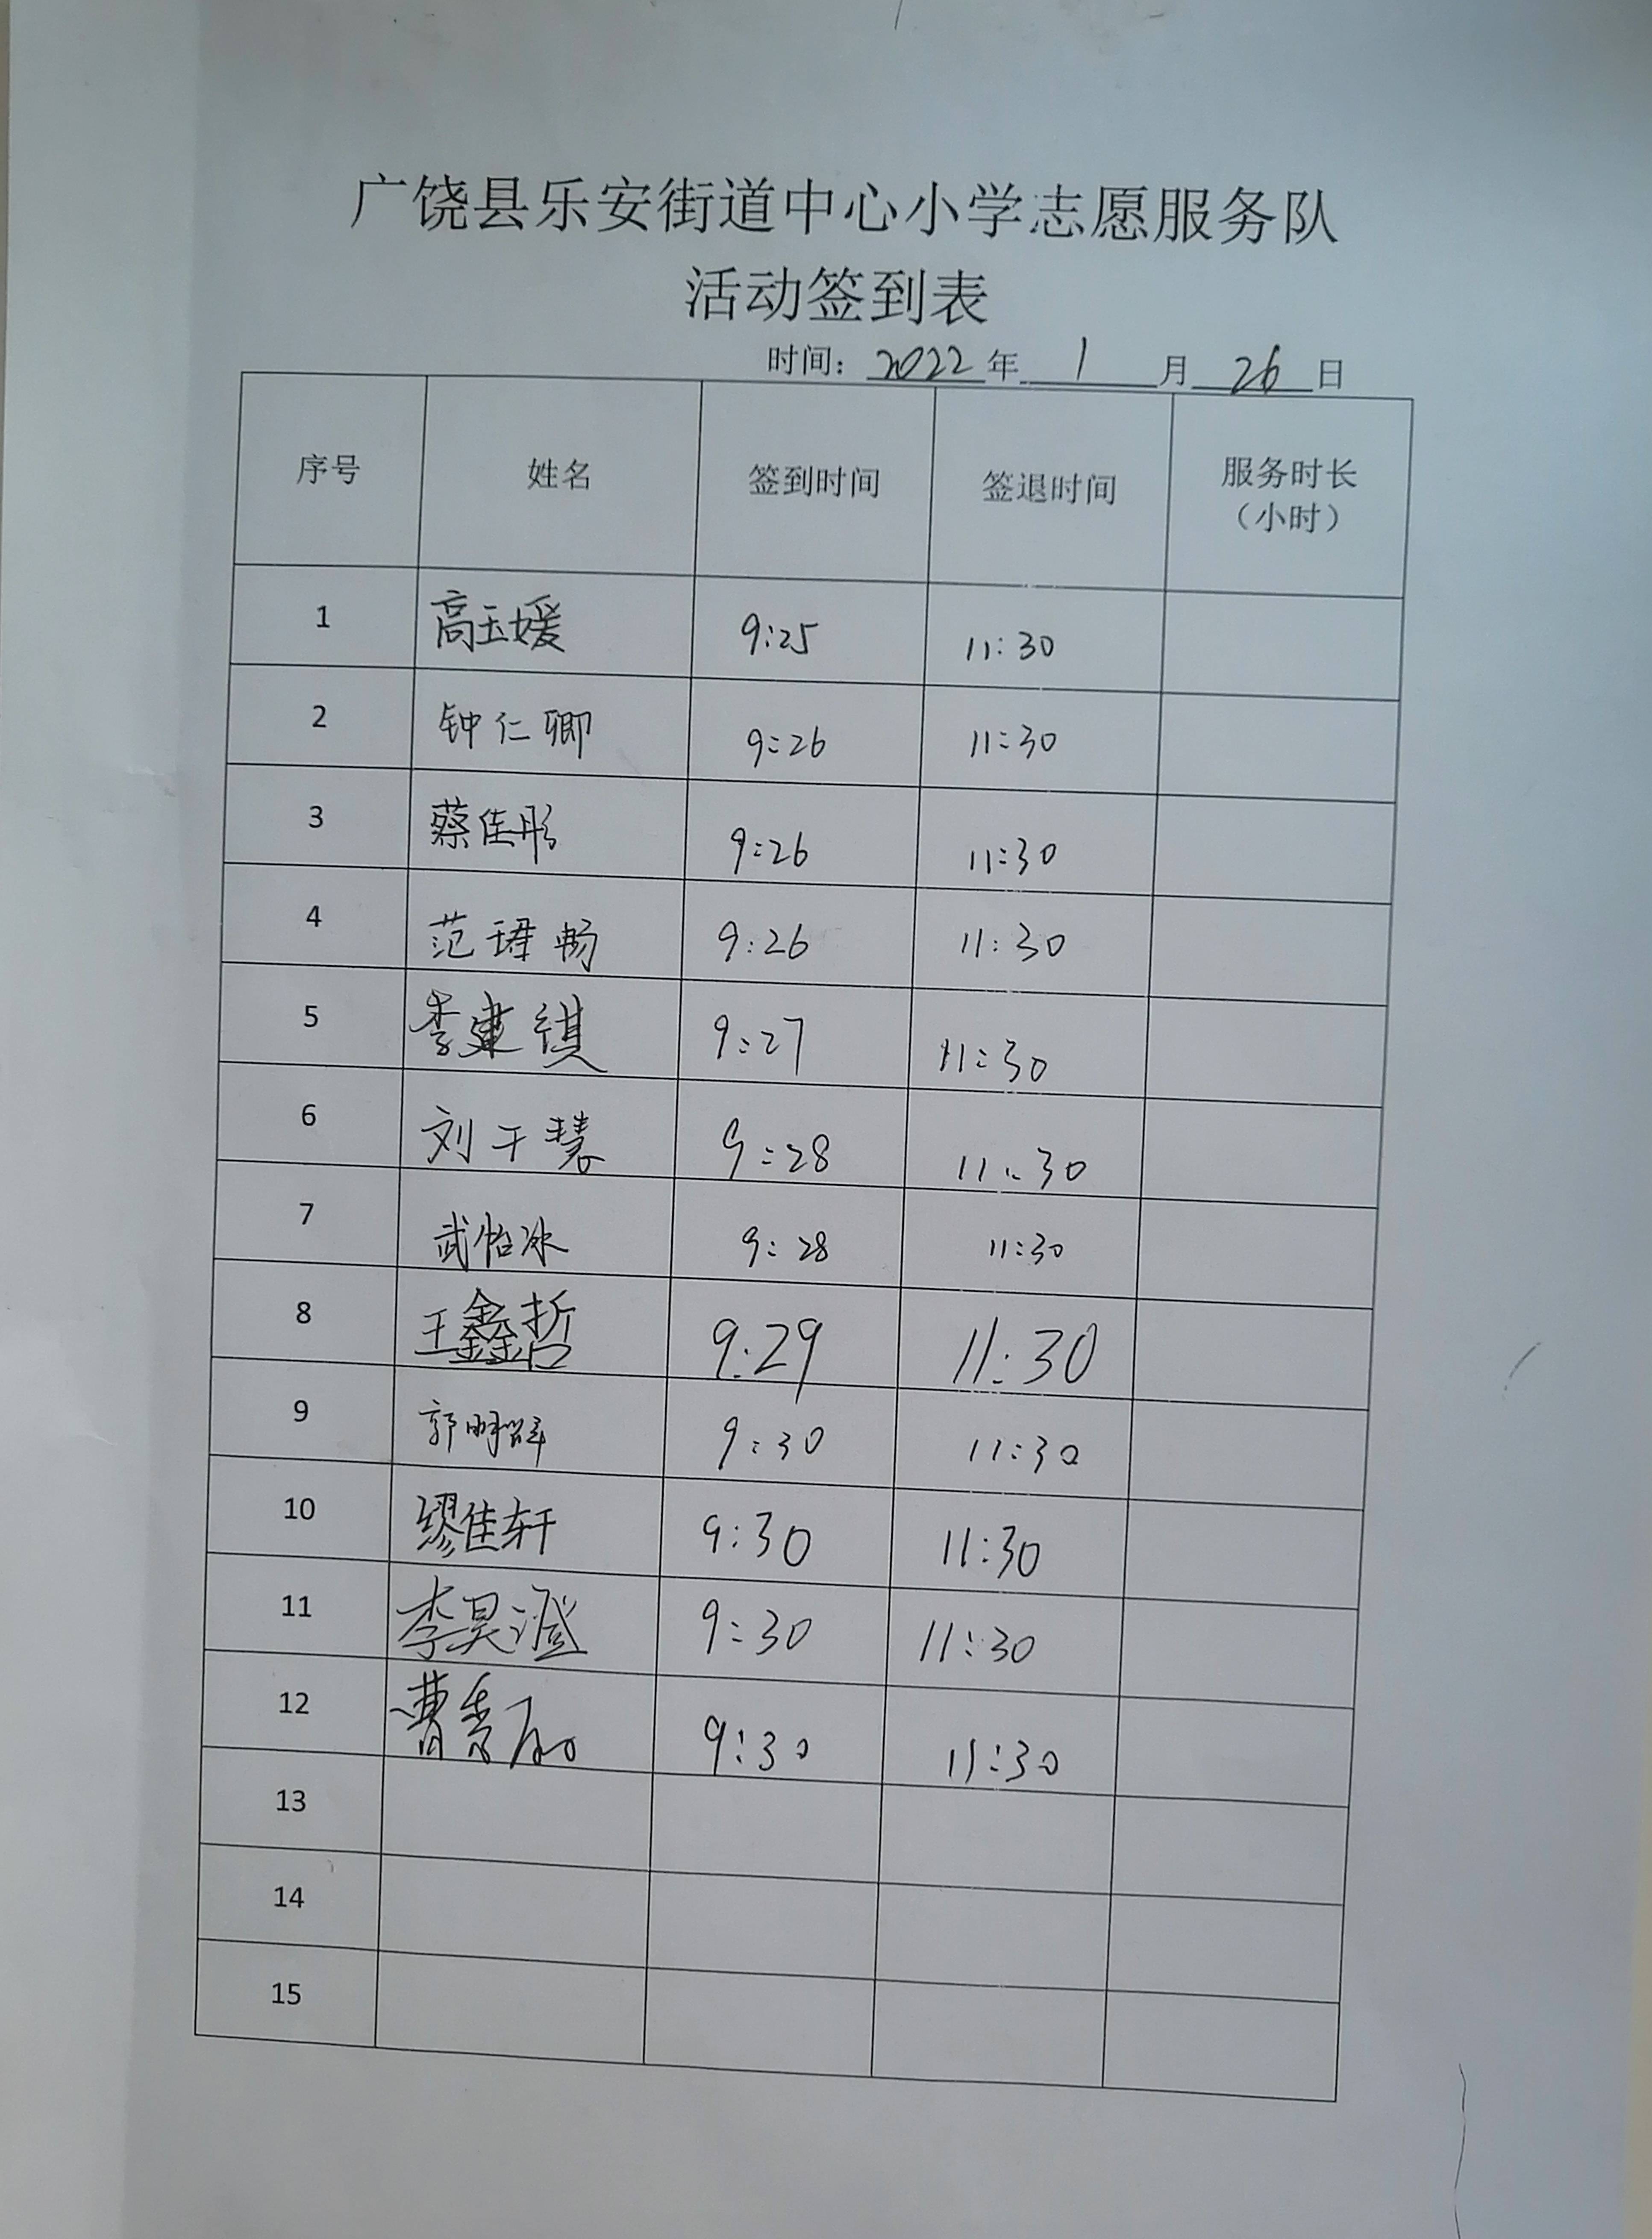 广饶县乐安街道中心小学志愿服务队
活动签到表
时间：2022年 1 月 26 日
序号 姓名 签到时间 签退时间 服务时长（小时）
1 高玉媛 9:25 11:30
2 钟仁卿 9:26 11:30
3 蔡佳彤 9:26 11:30
4 范琿畅 9:26 11:30
5 李建祺 9:27 11:30
6 刘干慧 9:28 11:30
7 武怡冰 9:28 11:30
8 王鑫哲 9:29 11:30
9 郭明 9:30 11:30
10 缪佳轩 9:30 11:30
11 李昊澄 9:30 11:30
12 曹秀 9:30 11:30
13
14
15